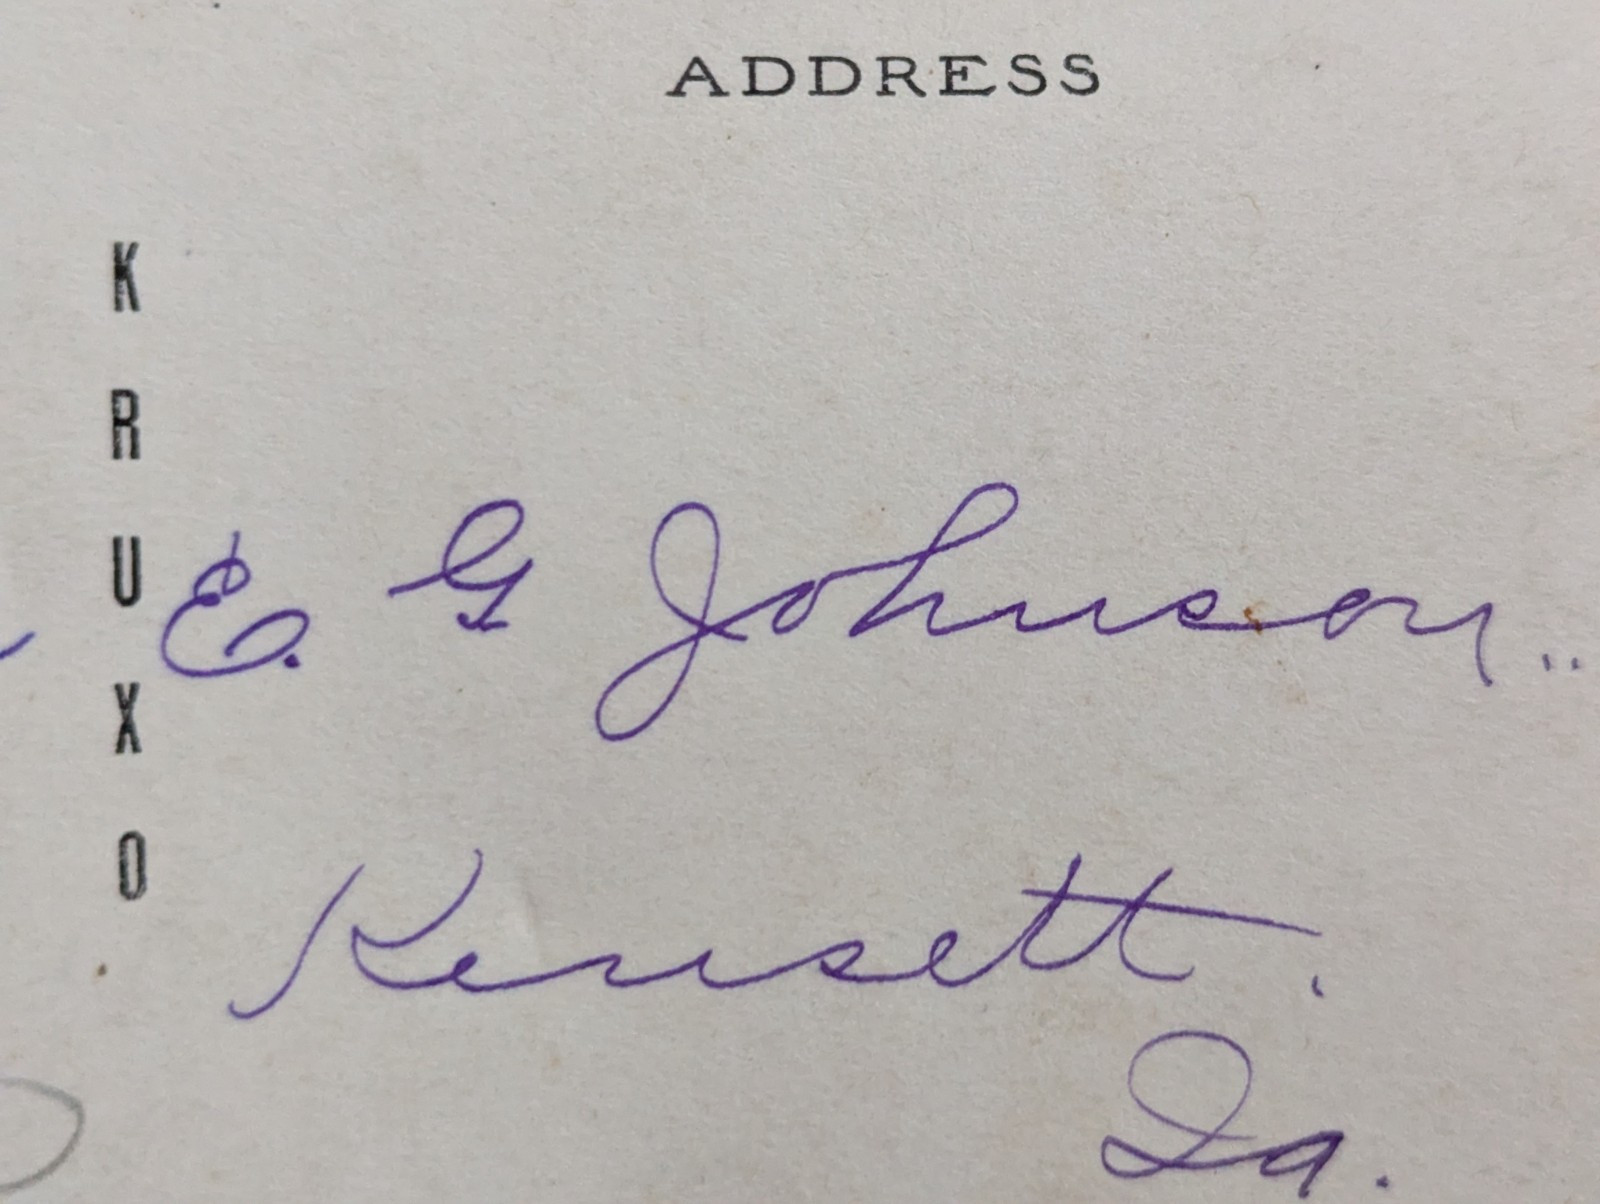 ADDRESS
KRUXO
E. G Johnson..
Kensett.
Ia.